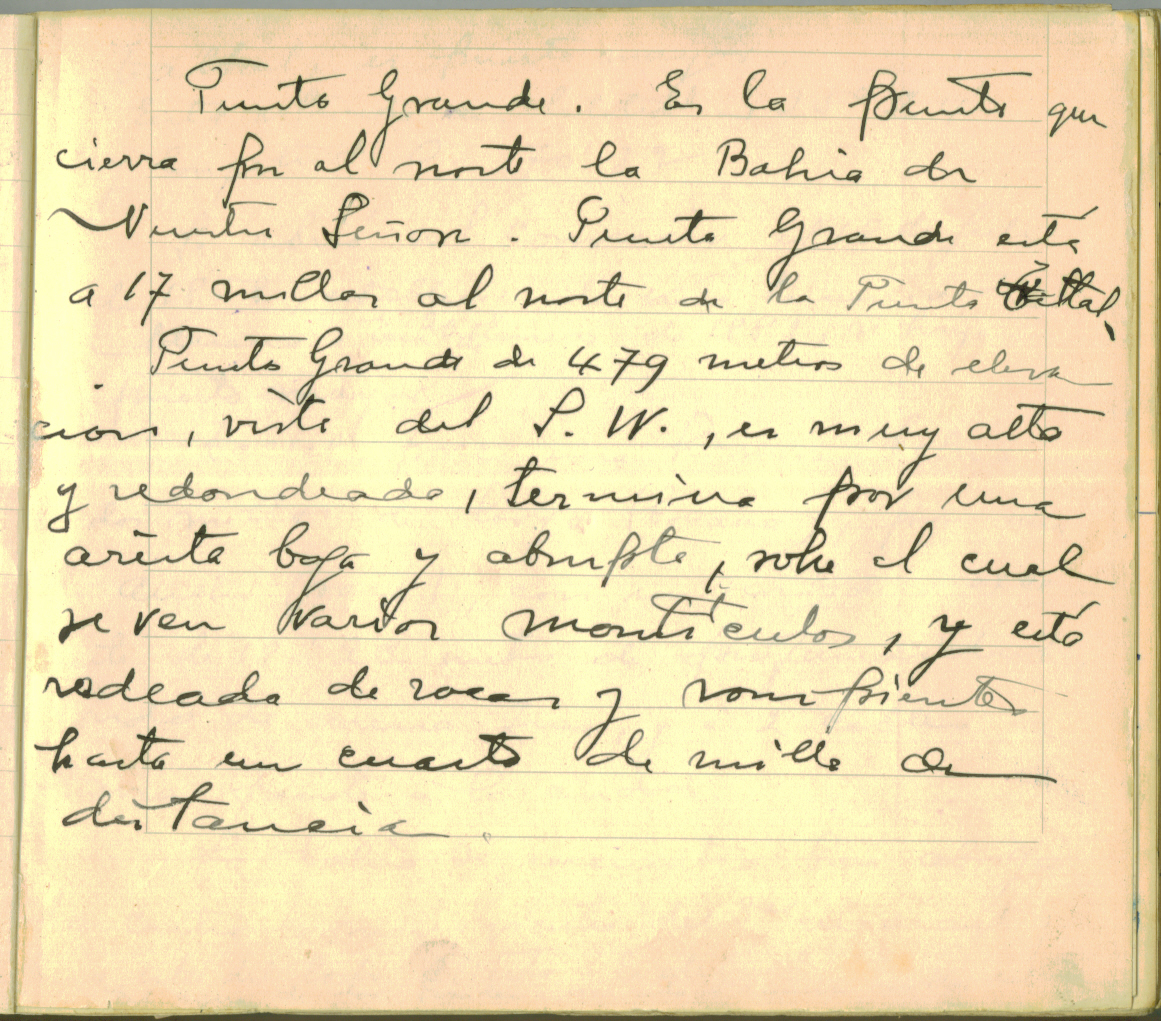 Punta Grande. Es la punta que
cierra por el norte la Bahia de
Nuestra Señora. Punta Grande está
a 17 millas al norte de la Punta
Punta Grande de 479 metros de eleva
cion, vista del S. W., es muy alta
y redondeada, termina por una
arista baja y abrupta, sobre el cual
se ven varios montículos, y está
rodeada de rocas y rompientes
hasta un cuarto de milla de
distancia.